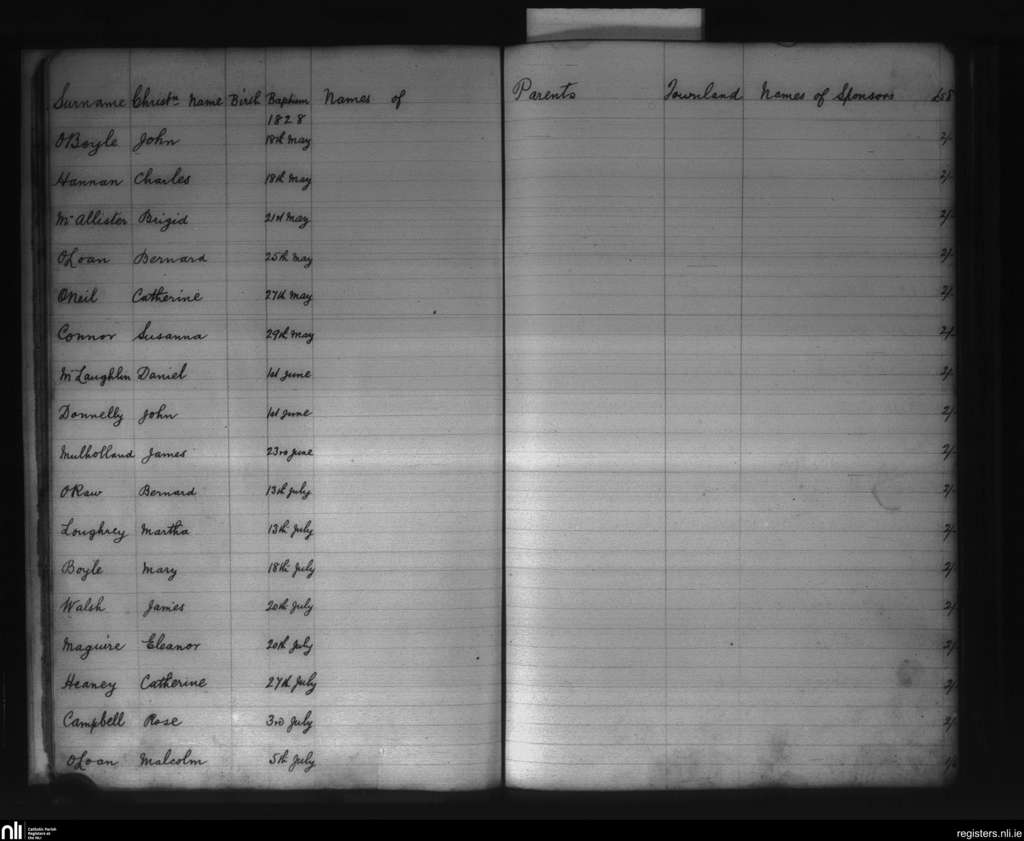 Surname Christn Name Birth Baptism Names of Parents Townland Names of Sponsors £ s d
1828
OBoyle John 18th May 2/-
Hannan Charles 18th May 2/-
McAllister Brigid 21st May 2/-
OLoan Bernard 25th May 2/-
ONeil Catherine 27th May 2/-
Connor Susanna 29th May 2/-
McLaughlin Daniel 1st June 2/-
Donnelly John 1st June 2/-
Mulholland James 23rd June 2/-
ORaw Bernard 13th July 2/-
Loughrey Martha 13th July 2/-
Boyle Mary 18th July 2/-
Walsh James 20th July 2/-
Maguire Eleanor 20th July 2/-
Heaney Catherine 27th July 2/-
Campbell Rose 3rd July 2/-
OLoan Malcolm 5th July
nli Catholic Parish
Registers at
the NLI
registers.nli.ie